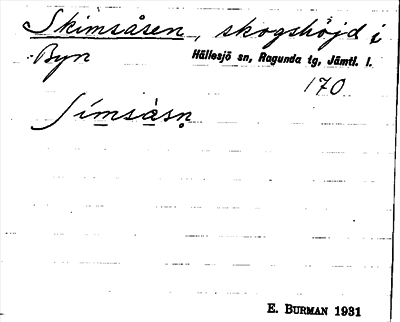 Skimsåsen, skogshöjd i
Byn Hällesjö sn, Ragunda tg, Jämtl. l.
170
Símsåsn̥
E. BURMAN 1931